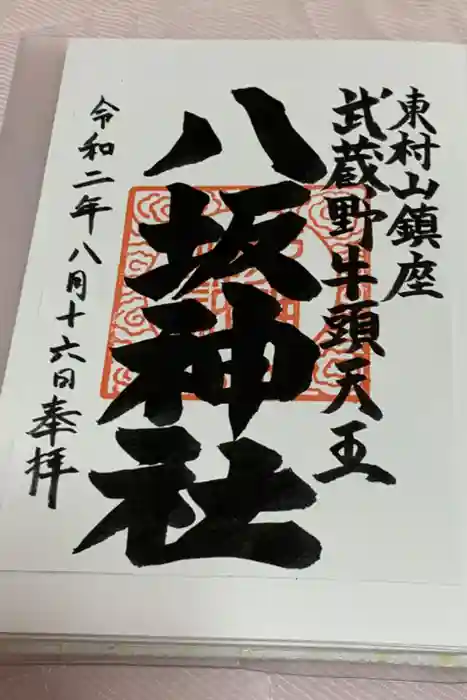 東村山鎮座
武蔵野牛頭天王
八坂神社
令和二年八月十六日奉拝